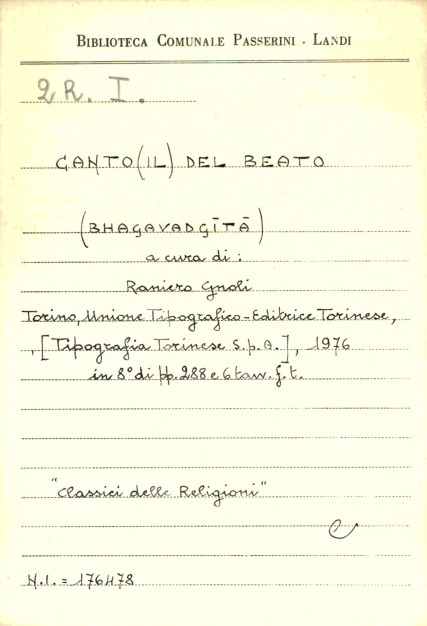 BIBLIOTECA COMUNALE PASSERINI - LANDI
2 R. I.
CANTO (IL) DEL BEATO
(BHAGAVADGĪTĀ)
a cura di:
Raniero Gnoli
Torino, Unione Tipografico-Editrice Torinese,
, [Tipografia Torinese S.p.A.], 1976
in 8° di pp. 288 e 6 tavv. f. t.
"Classici delle Religioni"
N.I. = 176478